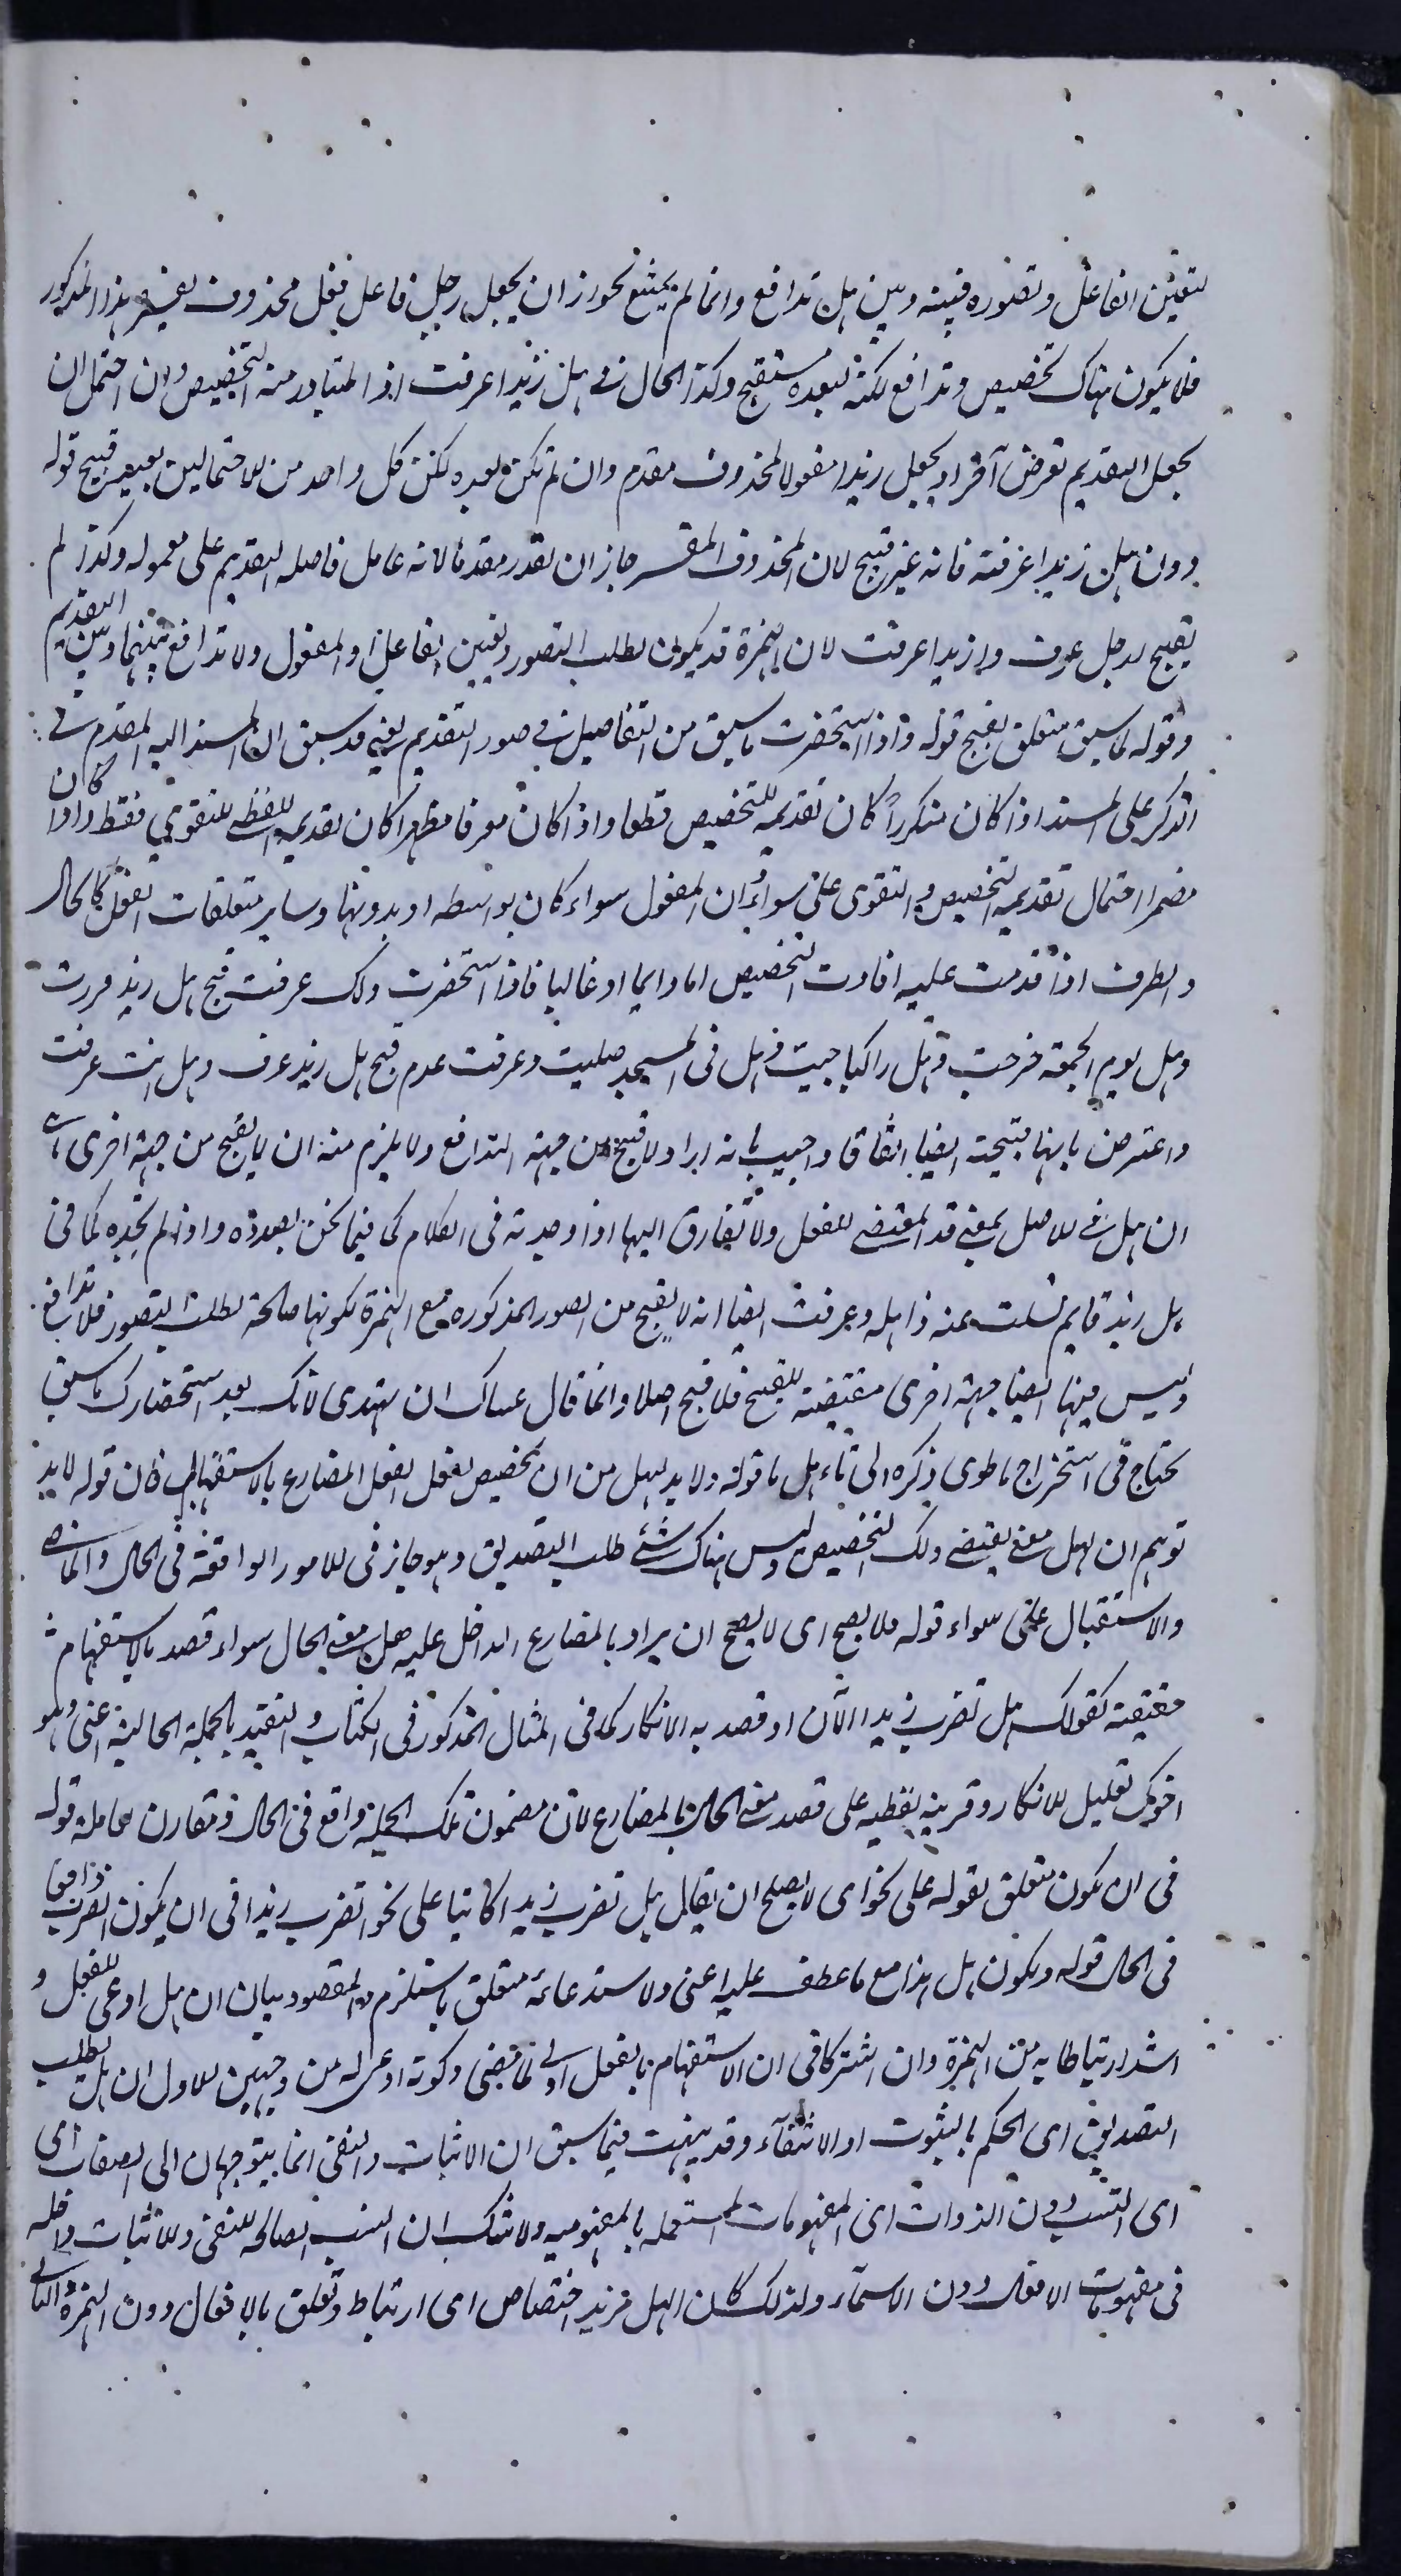 لتعين الفاعل وتصوره فبينه وبين هل تدافع وانما لم يمتنع لجواز ان يجعل رجل فاعل فعل محذوف يفسره هذا المذكور
فلا يكون هناك تخصيص وتدافع لكنه لبعده مستقبح وكذا الحال في هل زيدا عرفت اذ المتبادر منه التخصيص وان احتمل ان
يجعل التقديم لغرض آخر او يجعل زيدا مفعولا لمحذوف مقدم وان لم تكن بعيده لكن كل واحد من الاحتمالين بعيد قبيح قوله
دون هل زيدا عرفته فانه غير قبيح لان المحذوف المفسر جاز ان يقدر مقدما لانه عامل فاصله التقديم على معموله وكذا لم
يقبح ارجل عرف وازيدا عرفت لان الهمزة قد يكون لطلب التصور وتعين الفاعل او المفعول ولا تدافع بينهما وبين التقديم
وقوله لما سبق متعلق بقبح قوله واذا استحضرت ما سبق من التفاصيل في صور التقديم يعني قد سبق ان المسند اليه المقدم في
الذكر على المسند اذا كان منكرا كان تقديمه للتخصيص قطعا واذا كان معرفا مظهرا كان تقديمه للتقوي فقط واذا كان
مضمرا احتمل تقديمه التخصيص والتقوى على سواء وان المفعول سواء كان بواسطه او بدونها وساير متعلقات الفعل كالحال
والظرف اذا قدمت عليه افادت التخصيص اما دايما او غالبا فاذا استحضرت ذلك عرفت قبح هل زيد مررت
وهل يوم الجمعة خرجت وهل راكبا جيت وهل في المسجد صليت وعرفت عدم قبح هل زيد عرف وهل انت عرفت
واعترض بانهما قبيحة ايضا اتفاقا واجيب بانه اراد لا قبيح من جهة التدافع ولا يلزم منه ان لا يقبح من جهة اخرى
ان هل في الاصل بمعنى قد المقتضى للفعل ولا تفارق اليها اذا وجدته في الكلام كما فيما نحن بصدده واذا لم تجده كما في
هل زيد قايم تسلت عنه ذاهله وعرفت ايضا انه لا يقبح من الصور المذكوره مع الهمزة لكونها صالحة لطلب التصور فلا تدافع
وليس فيها ايضا جهة اخرى مقتضية للقبح فلا قبح اصلا وانما قال عساك ان تهتدى لانك بعد استحضارك ما سبق
تحتاج في استخراج ما طوى ذكره الى تامل ما قوله ولا بد لهل من ان يخصيص بفعل الفعل المضارع بالاستقبال فان قوله لا بد
توهم ان لهل معنى يقتضي ذلك التخصيص وليس هناك شئ طلب التصديق وهو جايز في الامور الواقعة في الحال والماضى
والاستقبال على سواء قوله فلا يصح اى لا يصح ان يراد بالمضارع الداخل عليه هل معنى الحال سواء قصد بالاستفهام
حقيقته كقولك هل تضرب زيدا الآن او قصد به الانكار كما في المثال المذكور في الكتاب والتقييد بالجملة الحالية اعنى وهو
اخوك تعليل للانكار وقرينة لفظيه على قصد معنى الحال بالمضارع لان مضمون تلك الجملة واقع في الحال ومقارن لعامله قوله
في ان يكون متعلق بقوله على نحو اى لا يصلح ان يقال هل تضرب زيدا كاينا على نحو اتضرب زيدا في ان يكون الضرب واقعا
في الحال قوله ويكون هل هذا مع ما عطف عليه اعنى ولاستدعائه متعلق باستلزم والمقصود بيان ان هل ادعى للفعل و
اشد ارتباطا به من الهمزة وان اشتركا في ان الاستفهام بالفعل اولى لما مضى وكونه ادعى له من وجهين الاول ان هل لطلب
التصديق اى الحكم بالثبوت او الانتفآء وقد نبهت فيما سبق ان الاثبات والنفى انما يتوجهان الى الصفات اى
اى النسب دون الذوات اى المفهومات المستعمله بالمفهوميه ولا شك ان النسب الصالحه للنفى والاثبات داخله
في مفهومات الافعال دون الاسمآء ولذلك كان الهل مزيد اختصاص اى ارتباط وتعلق بالافعال دون الهمزة الثانى